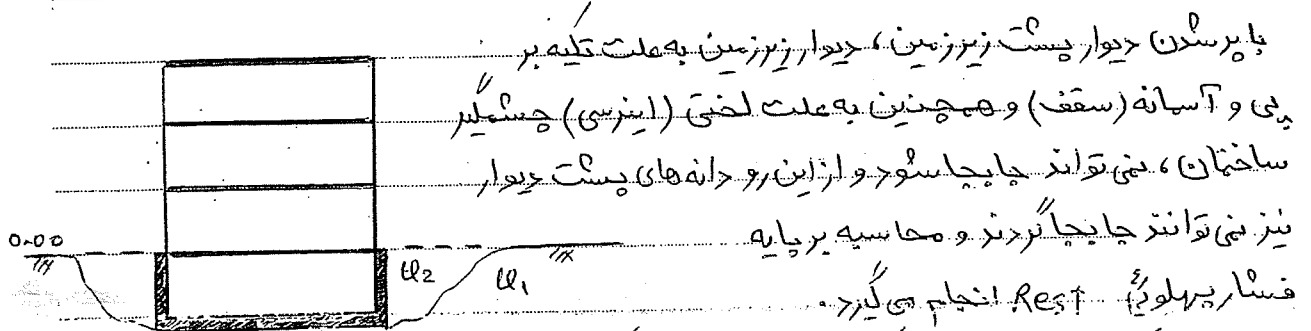 با پر شدن دیوار پشت زیرزمین، دیوار زیرزمین به علت تکیه بر
پی و آسمانه (سقف) و همچنین به علت لختی (اینرسی) چشمگیر
ساختمان، نمی تواند جابجا شود و از این رو دانه های پشت دیوار
نیز نمی توانند جابجا گردند و محاسبه بر پایه
فشار پهلوئی Rest انجام می گیرد.
0.00
φ2
φ1